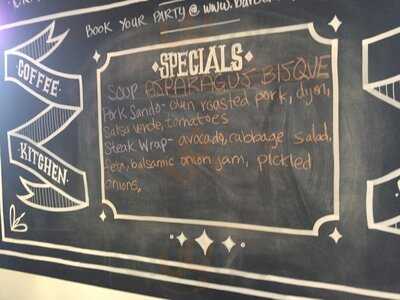 BOOK YOUR PARTY @ WWW.
SPECIALS
COFFEE
SOUP ASPARAGUS BISQUE
Pork Sando- oven roasted pork, dijon,
Salsa verde, tomatoes
Steak Wrap- avocado, cabbage salad,
feta, balsamic onion jam, pickled
onions,
KITCHEN